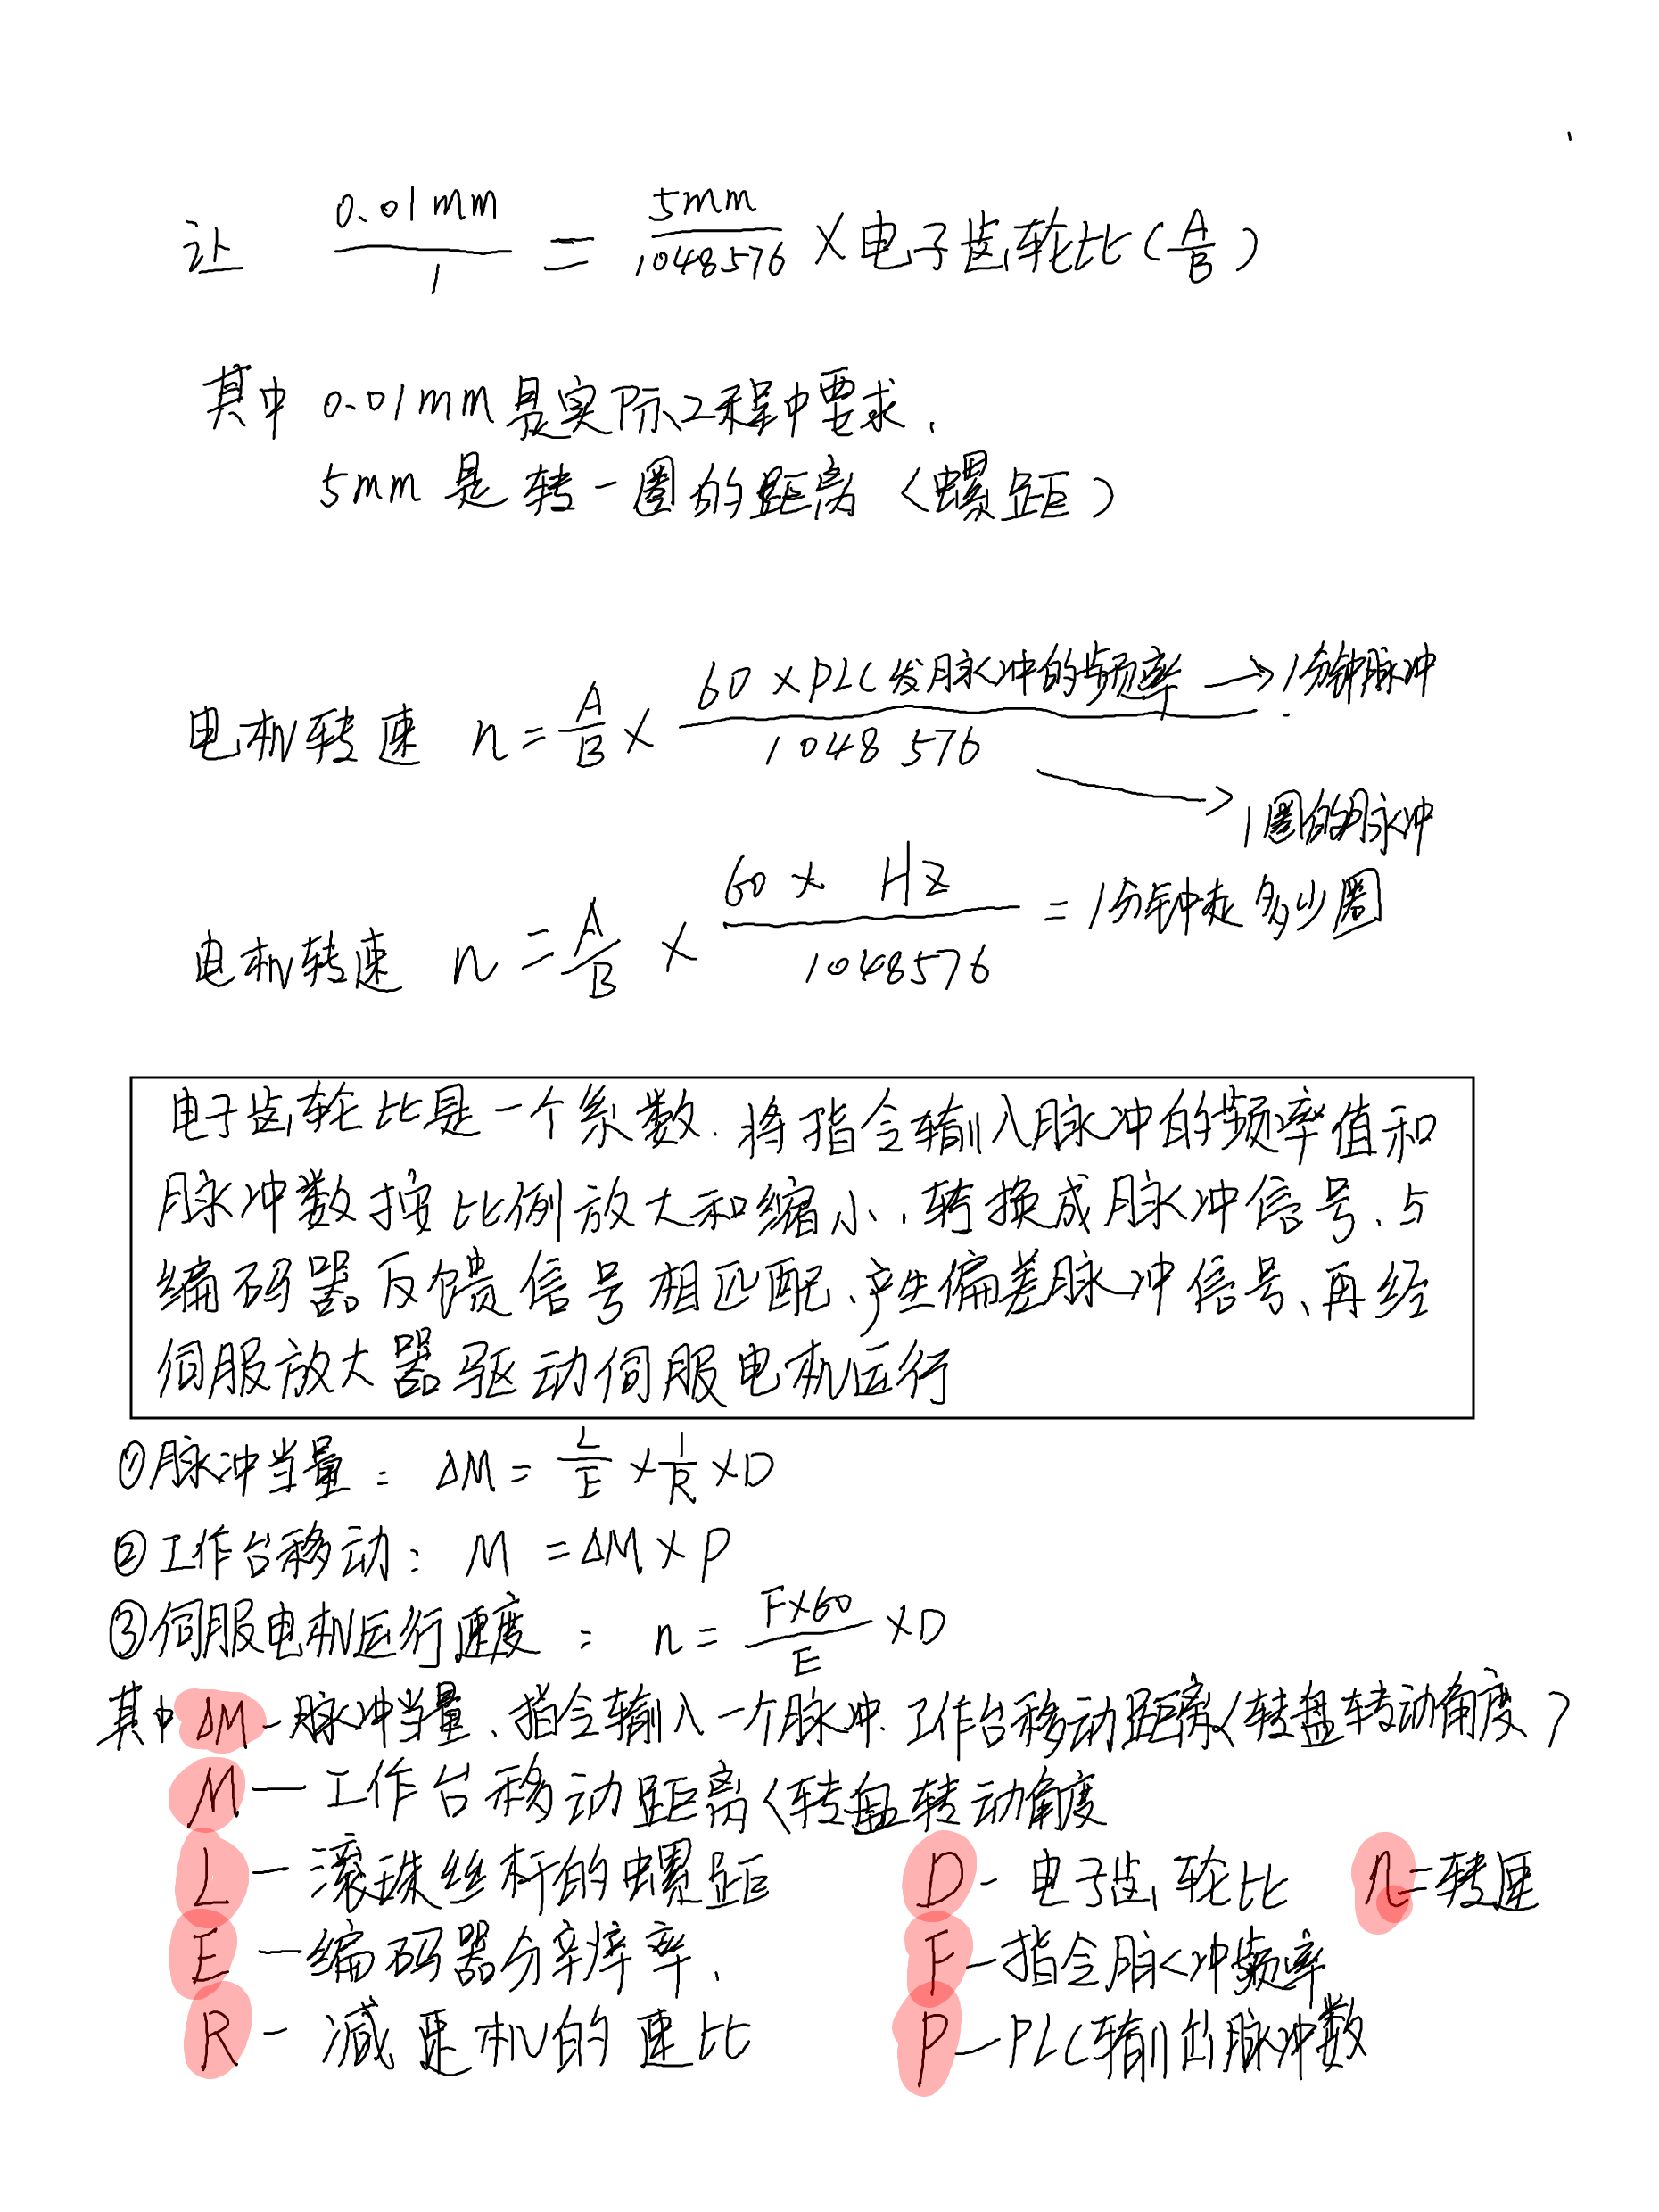 让 0.01mm/1 = 5mm/1048576 × 电子齿轮比(A/B)
其中 0.01mm是实际工程中要求.
5mm 是转一圈的距离(螺距)
电机转速 n = A/B × 60×PLC发脉冲的频率/1048576 → 1分钟脉冲
→ 1圈的脉冲
电机转速 n = A/B × 60× HZ/1048576 = 1分钟走多少圈
电子齿轮比是一个系数.将指令输入脉冲的频率值和
脉冲数按比例放大和缩小,转换成脉冲信号、与
编码器反馈信号相匹配、产生偏差脉冲信号、再经
伺服放大器驱动伺服电机运行
①脉冲当量: ΔM = L/E × 1/R × D
②工作台移动: M = ΔM × P
③伺服电机运行速度: n = F×60/E × D
其中ΔM-脉冲当量、指令输入一个脉冲.工作台移动距离(转盘转动角度)
M—工作台移动距离(转盘转动角度
L—滚珠丝杆的螺距 D-电子齿轮比 n=转速
E—编码器分辨率. F-指令脉冲频率
R-减速机的速比 P—PLC输出脉冲数